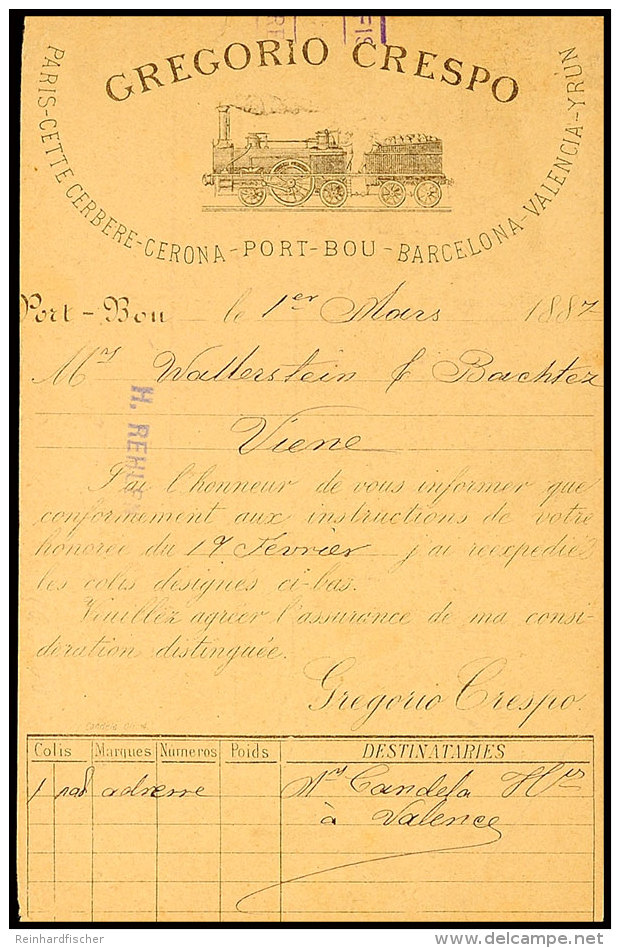 GREGORIO CRESPO
PARIS-CETTE CERBERE-CERONA-PORT-BOU-BARCELONA-VALENCIA-YRUN
Port-Bou le 1er Mars 1887
Mrs Wallerstein & Bachter
Viene
J'ai l'honneur de vous informer que
conformement aux instructions de votre
honoree du 19 Fevrier j'ai reexpediez
les colis designes ci-bas.
Veuillez agreer l'assurance de ma consi-
deration distinguée.
Gregorio Crespo.
Colis Marques Numeros Poids DESTINATARIES
1 adresse Mrs Candela Hos
à Valence
H. REHUE
Reinhardfischer
delcampe.net